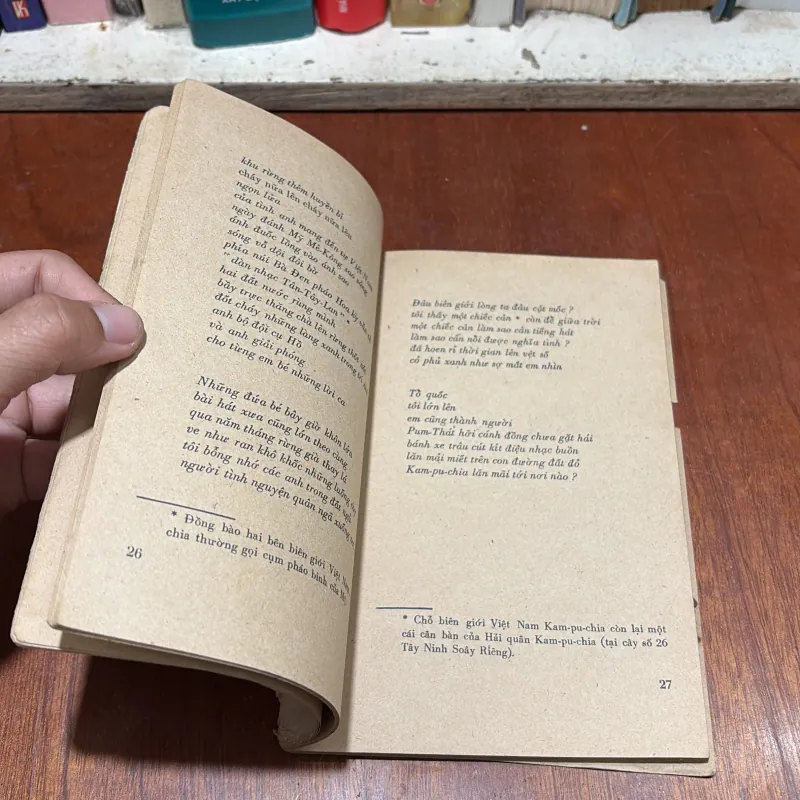 khu rừng thêm huyền bí
cháy nữa lên cháy nữa lên
ngọn lửa
của tình anh mang đến từ Việt Nam
ngày đánh Mỹ Mê-Kông sao sáng
ánh đuốc lồng vào ánh sao
sóng vỗ dội đôi bờ
phía núi Bà Đen pháo Hoa kỳ
" dàn nhạc Tân-Tây-Lan " *
hai đất nước rùng mình
bầy trực thăng chà lên rừng thốt nốt
đốt cháy những làng xanh trong
anh bộ đội cụ Hồ
và anh giải phóng
cho từng em bé những lời ca
Những đứa bé bây giờ khôn lớn
bài hát xưa cũng lớn theo cùng
qua năm tháng rừng già thay lá
ve như ran khô khốc những luống cày
tôi bỗng nhớ các anh trong đất ngủ
người tình nguyện quân ngã xuống
* Đồng bào hai bên biên giới Việt Nam
chia thường gọi cụm pháo binh của Mỹ
26
Đâu biên giới lòng ta đâu cột mốc ?
tôi thấy một chiếc cân * còn để giữa trời
một chiếc cân làm sao cân tiếng hát
làm sao cân nổi được nghĩa tình ?
đã hoen rỉ thời gian lên vệt số
cỏ phủ xanh như sự mát em nhìn
Tổ quốc
tôi lớn lên
em cũng thành người
Pum-Thát hỡi cánh đồng chưa gặt hái
bánh xe trâu cút kít điệu nhạc buồn
lăn mải miết trên con đường đất đỏ
Kam-pu-chia lăn mãi tới nơi nào ?
* Chỗ biên giới Việt Nam Kam-pu-chia còn lại một
cái cân bàn của Hải quân Kam-pu-chia (tại cây số 26
Tây Ninh Soây Riêng).
27